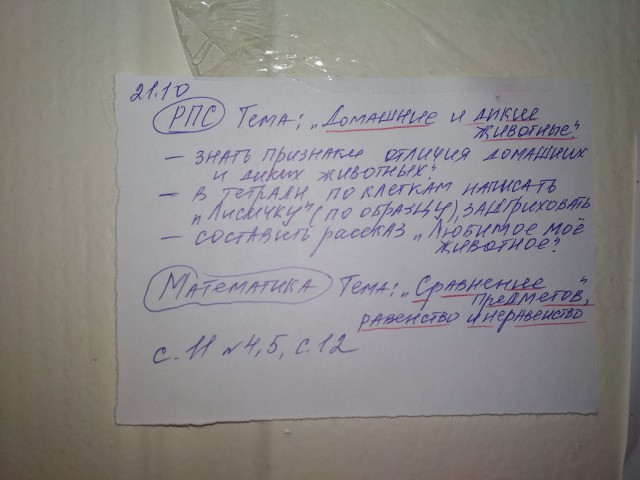 21.10
РПС Тема: „Домашние и дикие
животные".
– знать признаки отличия домашних
и диких животных.
– в тетради по клеткам написать
„Лисичку" (по образцу), заштриховать
– составить рассказ „Любимое моё
животное".
Математика Тема: „Сравнение
предметов,
равенство и неравенство"
с. 11 № 4, 5, с. 12